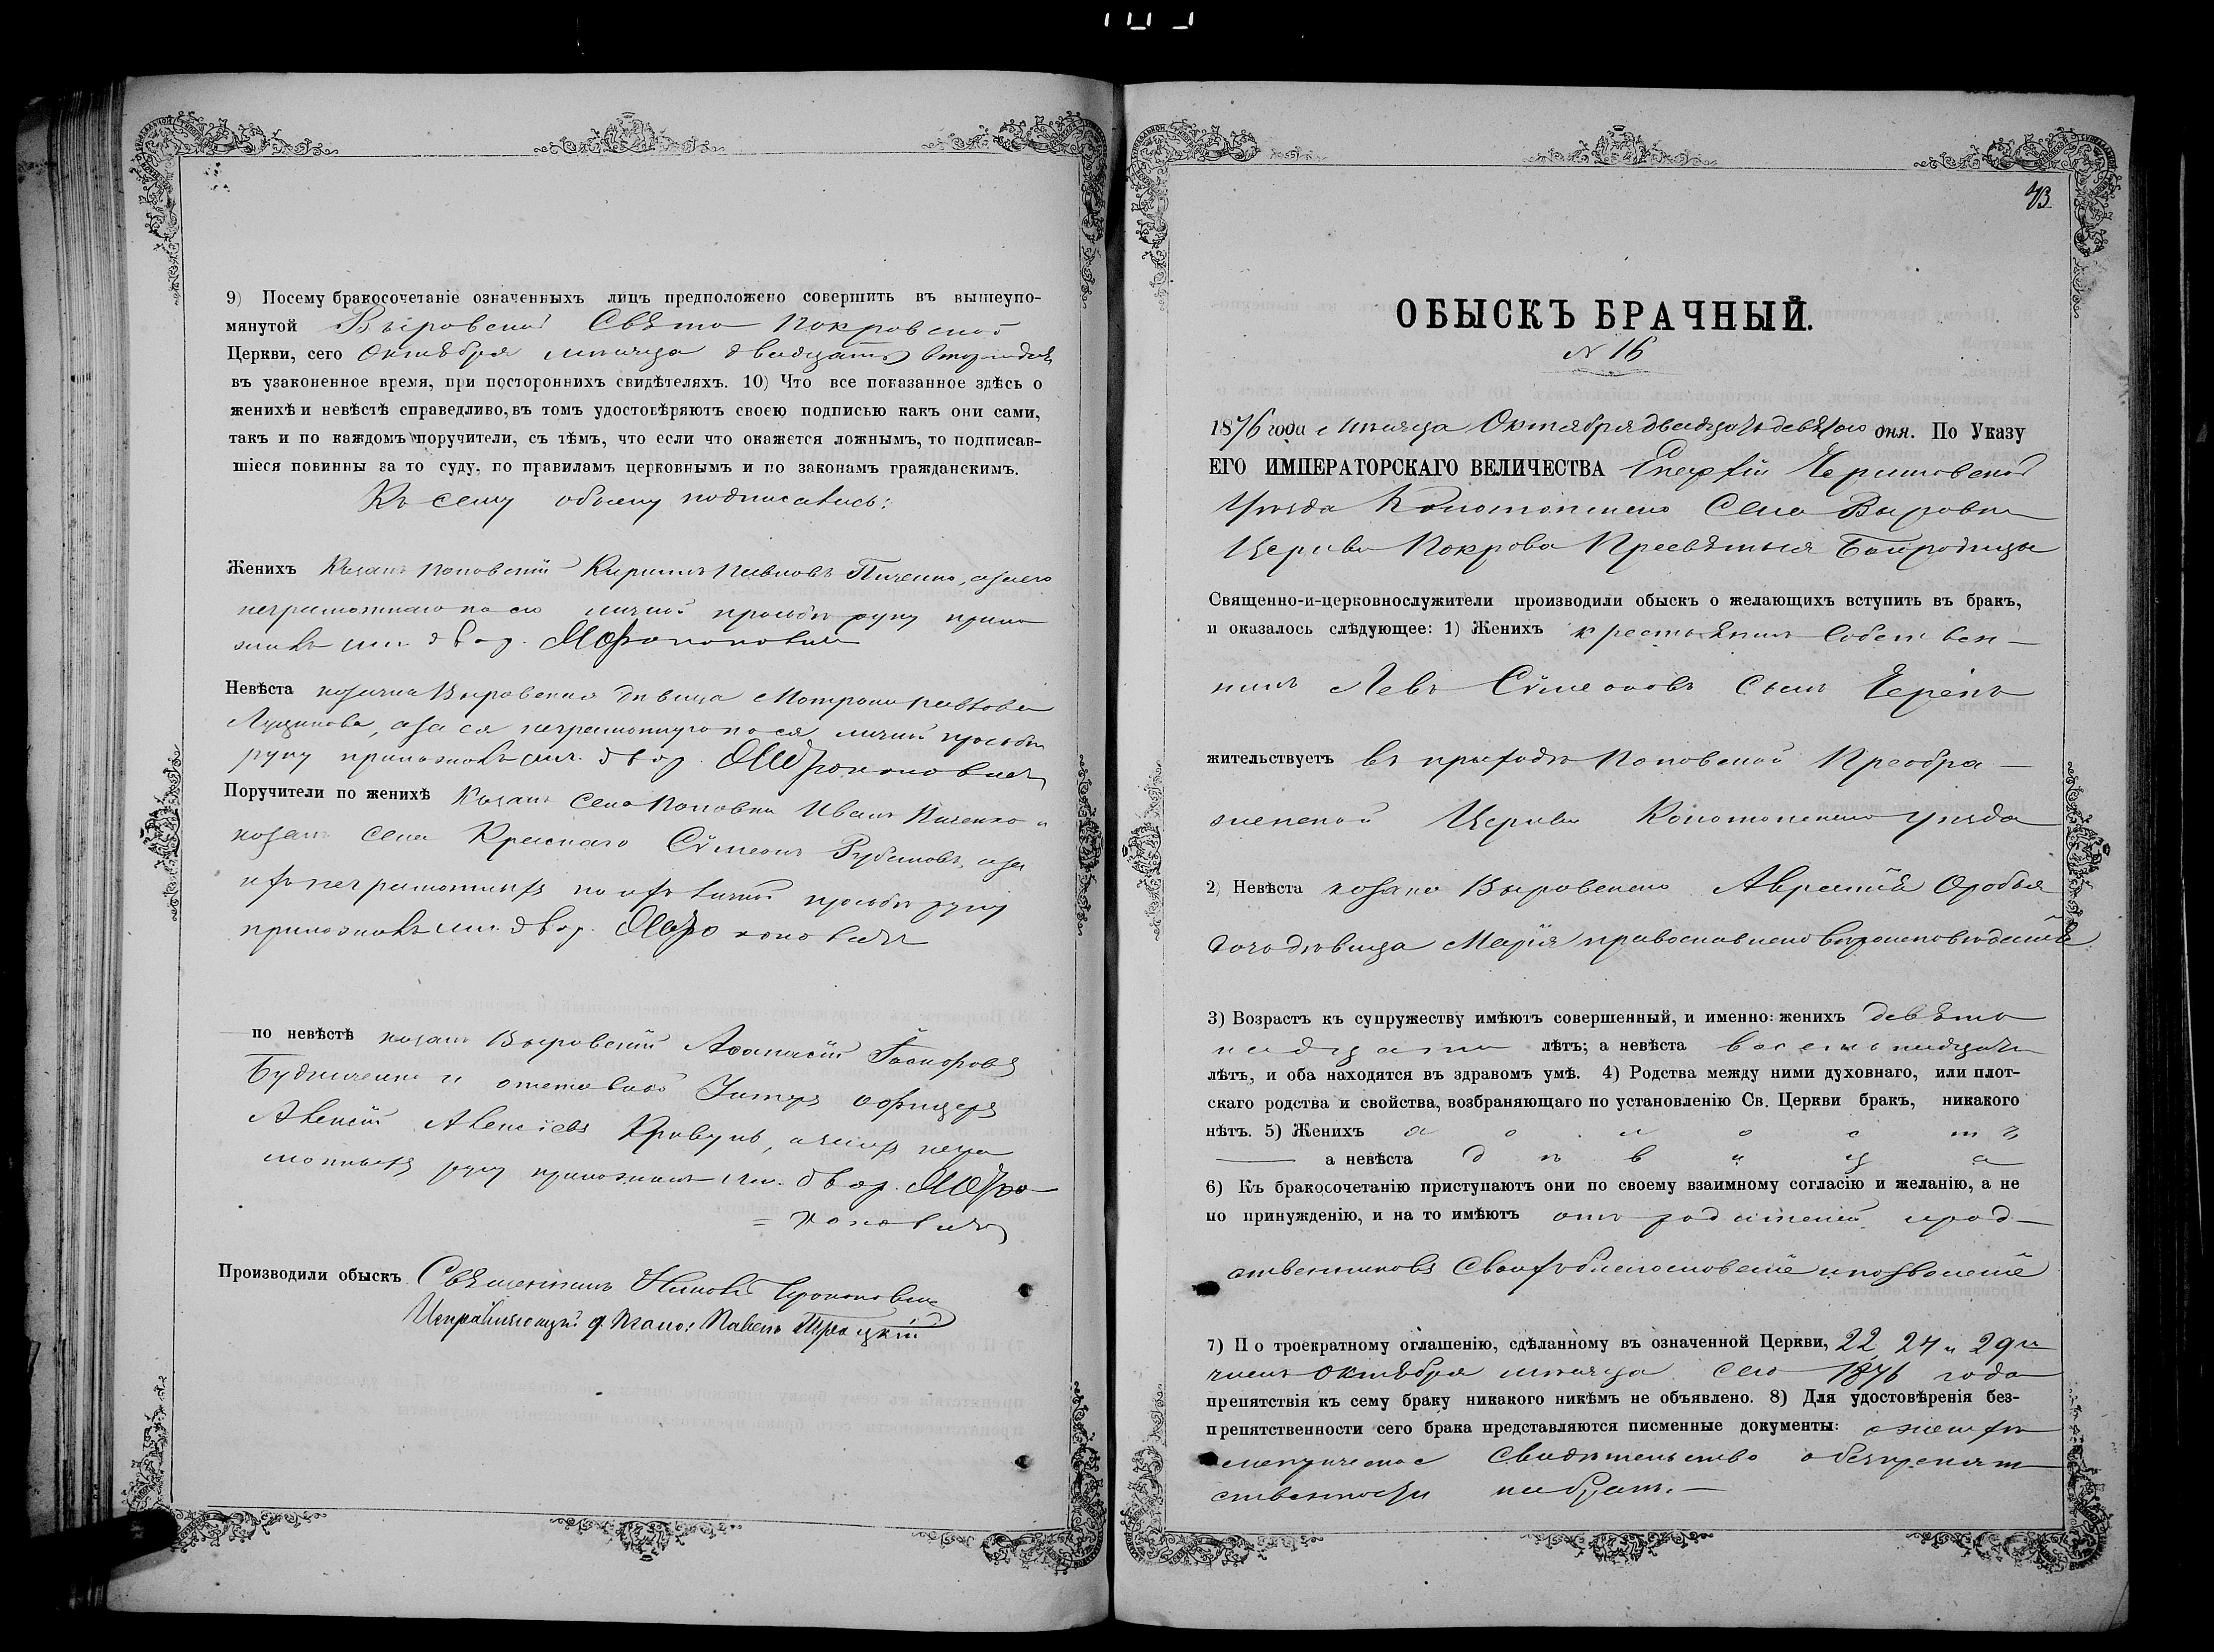 9) Посему бракосочетаніе означенныхъ лицъ предположено совершить въ вышеупо-
мянутой Выровской Свято Покровской
Церкви, сего Октября мѣсяца двадцать
въ узаконенное время, при постороннихъ свидѣтеляхъ. 10) Что все показанное здѣсь о
женихѣ и невѣстѣ справедливо, въ томъ удостовѣряютъ своею подписью какъ они сами,
такъ и по каждомъ поручители, съ тѣмъ, что если что окажется ложнымъ, то подписав-
шіеся повинны за то суду, по правиламъ церковнымъ и по законамъ гражданскимъ.
Къ сему обыску подписались:
Женихъ Козакъ Поповскій Кирилъ Павловъ, а за его
неграмотнаго по его личной просьбѣ руку прило
жилъ двор.
Невѣста козачка Выровская дѣвица Мотрона Павлова
а за ея неграмотную по ея личной просьбѣ
руку приложилъ двор.
Поручители по женихѣ Козакъ Села Поповки Иванъ и
козакъ села Краснаго Сѵмеонъ Рубановъ, а за
ихъ неграмотныхъ по ихъ личной просьбѣ руку
приложилъ двор.
по невѣстѣ козакъ Выровскій Аѳанасій
и отставной Унтеръ офицеръ
Алексій Алексіевъ Кривунъ, а за нихъ негра
мотныхъ руку приложилъ двор.
Производили обыскъ Священникъ
Исправляющій д. Псалом: Павелъ Троцкій
73
ОБЫСКЪ БРАЧНЫЙ.
N 16
1876 года Мѣсяца Октября двадцать девятого дня. По Указу
ЕГО ИМПЕРАТОРСКАГО ВЕЛИЧЕСТВА Епархіи Черниговской
Уѣзда Конотопскаго Села Выровки
Церкви Покрова Пресвятыя Богородицы
Священно-и-церковнослужители производили обыскъ о желающихъ вступить въ бракъ,
и оказалось слѣдующее: 1) Женихъ крестьянинъ собствен-
никъ Левъ Сѵмеоновъ сынъ
жительствуетъ въ приходѣ Поповской Преобра-
женской Церкви Конотопскаго уѣзда
2) Невѣста козака Выровскаго
дочь дѣвица Марія православнаго вѣроисповѣданія
3) Возрастъ къ супружеству имѣютъ совершенный, и именно: женихъ девят
надцати лѣтъ; а невѣста восемнадцати
лѣтъ, и оба находятся въ здравомъ умѣ. 4) Родства между ними духовнаго, или плот-
скаго родства и свойства, возбраняющаго по установленію Св. Церкви бракъ, никакого
нѣтъ. 5) Женихъ холостъ
а невѣста дѣвица
6) Къ бракосочетанію приступаютъ они по своему взаимному согласію и желанію, а не
по принужденію, и на то имѣютъ отъ родителей и род-
ственниковъ своихъ благословеніе и позволеніе
7) По троекратному оглашенію, сдѣланному въ означенной Церкви, 22, 24 и 29го
чиселъ Октября мѣсяца сего 1876 года
препятствія къ сему браку никакого никѣмъ не объявлено. 8) Для удостовѣренія без-
препятственности сего брака представляются писменные документы: о женихѣ
метрическое свидѣтельство о безпрепят
ственности на бракъ.